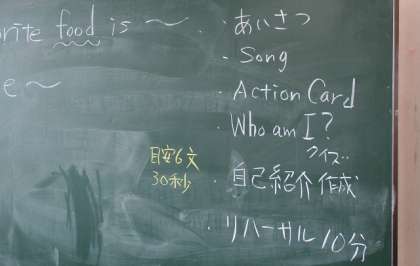 rite food is 〜
e 〜
・あいさつ
・Song
・Action Card
・Who am I?
クイズ‥
目安6文
30秒
・自己紹介作成
・リハーサル10分